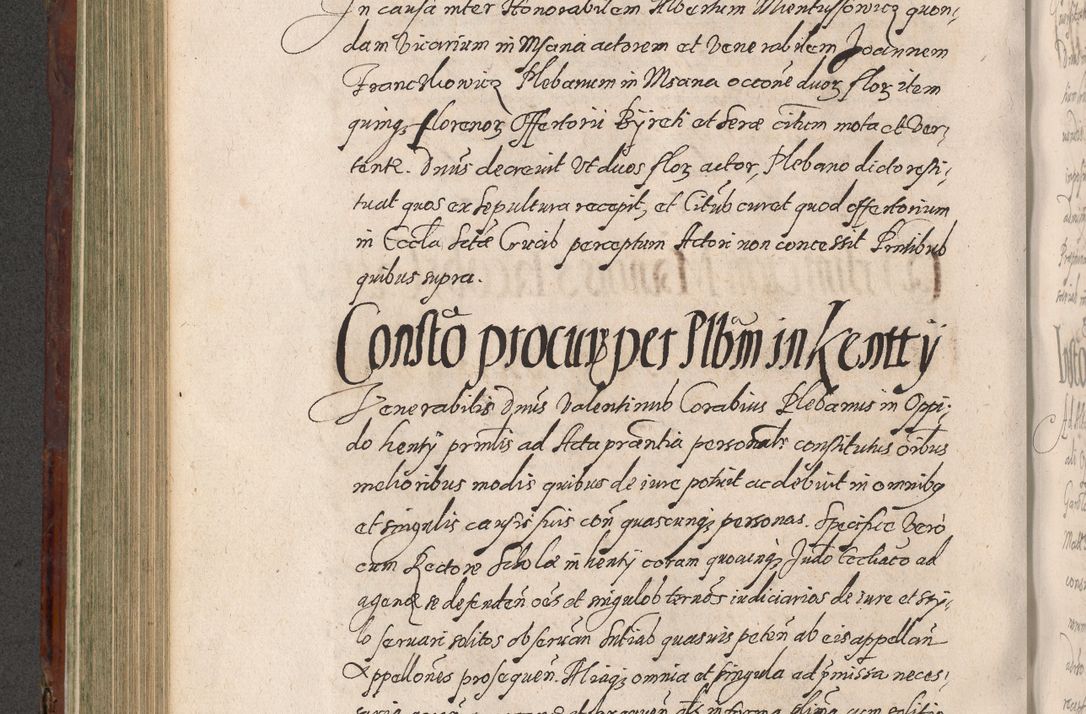 In causa inter Honorabilem Albertum Mientussowicz quon,
dam Vicarium in Msana actorem et Venerabilem Joannem
Plebanum in Msana occōne duoꝝ floꝝ item
quinqꝫ florenoꝝ Offertorii Byreti et Seræ citum mota et Ver,
tente. Dnūs decrevit Ut duos floꝝ actor, Plebano dicto resti,
tuat quos ex Sepultura recepit, et Citūb curet quod offertorium
in Eccła Sctæ Crucis perceptum Actori non concessit Pntibus
quibus supra.
Constō procur per Plbm in Kentty
Venerabilis Dnūs Valentinus Corabius Plebanus in Oppi,
do Kenty prīntis ad Acta præntia personalr constitutus oībus
melioribus modis quibus de iure potuit ac debuit in omnibꝫ
et singulis causis suis con quascunqꝫ personas. Specifice Vero
cum Rectore Scholæ in Kenty coram quocunqꝫ Judō Eccliaco ad
agend se defenden oēs et singulos ternōs iudiciarios de iure et sty,
lo servari solitos observan Sntias quasvis peten ab eis appellan
Appellōnes prosequen. Aliaqꝫ omnia et singula ad pmissa neces,